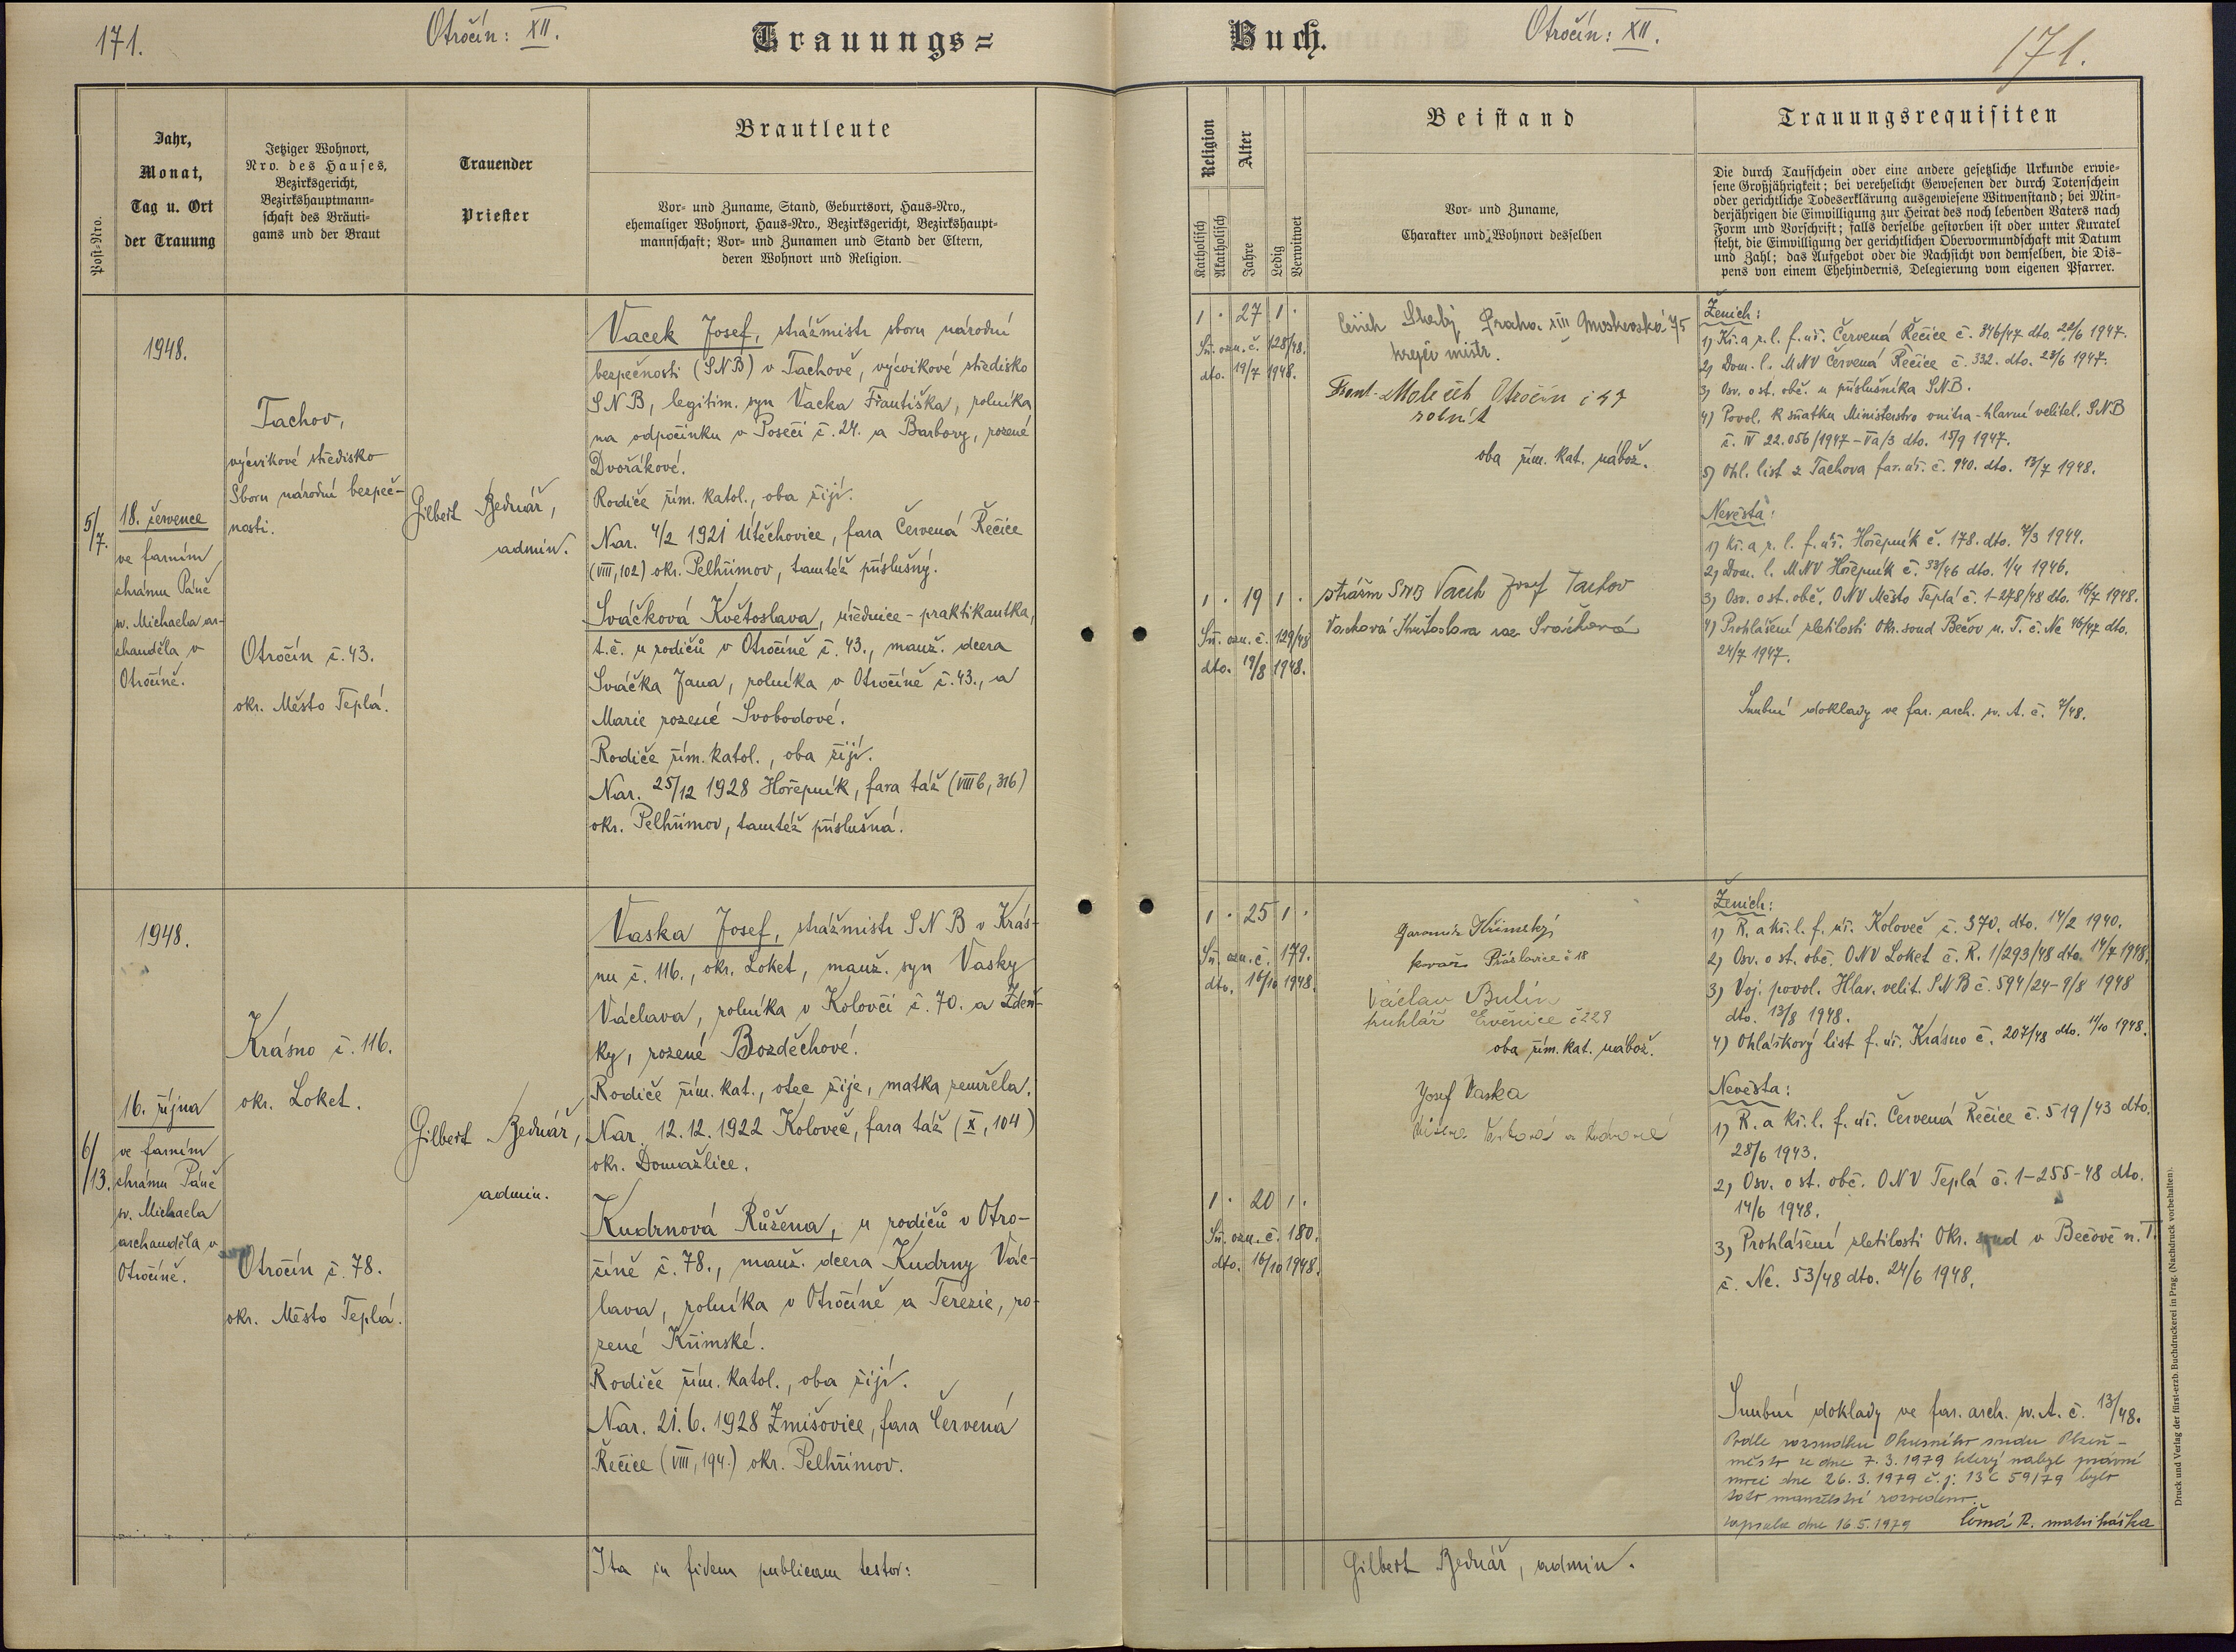 171.
Otročín: XII.
Trauungs=
Post-Nro.
Jahr,
Monat,
Tag u. Ort
der Trauung
Jetziger Wohnort,
Nro. des Hauses,
Bezirksgericht,
Bezirkshauptmann-
schaft des Bräuti-
gams und der Braut
Trauender
Priester
Brautleute
Vor- und Zuname, Stand, Geburtsort, Haus-Nro.,
ehemaliger Wohnort, Haus-Nro., Bezirksgericht, Bezirkshaupt-
mannschaft; Vor- und Zunamen und Stand der Eltern,
deren Wohnort und Religion.
5/7.
1948.
18. července
ve farním
chrámu Páně
sv. Michaela ar-
chanděla v
Otročíně.
Tachov,
výcvikové středisko
Sboru národní bezpeč-
nosti.
Otročín č. 43.
okr. Město Teplá.
Gilbert Bednář,
admin.
Vacek Josef, strážmistr sboru národní
bezpečnosti (SNB) v Tachově, výcvikové středisko
SNB, legitim. syn Vacka Františka, rolníka
na odpočinku v Poseči č. 24. a Barbory, rozené
Dvořákové.
Rodiče řím. katol., oba žijí.
Nar. 4/2 1921 Útěchovice, fara Červená Řečice
(VIII, 102) okr. Pelhřimov, tamtéž příslušný.
Sváčková Květoslava, úřednice-praktikantka,
t.č. u rodičů v Otročíně č. 43., manž. dcera
Sváčka Jana, rolníka v Otročíně č. 43., a
Marie rozené Svobodové.
Rodiče řím. katol., oba žijí.
Nar. 25/12 1928 Hořepník, fara táž (VIII b, 316)
okr. Pelhřimov, tamtéž příslušná.
6/13.
1948.
16. října
ve farním
chrámu Páně
sv. Michaela
archanděla v
Otročíně.
Krásno č. 116.
okr. Loket.
Otročín č. 78.
okr. Město Teplá.
Gilbert Bednář,
admin.
Vaska Josef, strážmistr SNB v Krás-
nu č. 116., okr. Loket, manž. syn Vasky
Václava, rolníka v Kolovči č. 70. a Zdeň-
ky, rozené Bozděchové.
Rodiče řím. kat., otec žije, matka zemřela.
Nar. 12.12.1922 Koloveč, fara táž (X, 104)
okr. Domažlice.
Kudrnová Růžena, u rodičů v Otro-
číně č. 78., manž. dcera Kudrny Vác-
lava, rolníka v Otročíně a Terezie, ro-
zené Křimské.
Rodiče řím. katol., oba žijí.
Nar. 21.6.1928 Zmišovice, fara Červená
Řečice (VIII, 194.) okr. Pelhřimov.
Ita in fidem publicam testor:
Buch.
Otročín: XII.
171.
Religion
Katholisch
Akatholisch
Alter
Jahre
Ledig
Verwitwet
Beistand
Vor- und Zuname,
Charakter und Wohnort desselben
Trauungsrequisiten
Die durch Taufschein oder eine andere gesetzliche Urkunde erwie-
sene Großjährigkeit; bei verehelicht Gewesenen der durch Totenschein
oder gerichtliche Todeserklärung ausgewiesene Witwenstand; bei Min-
derjährigen die Einwilligung zur Heirat des noch lebenden Vaters nach
Form und Vorschrift; falls derselbe gestorben ist oder unter Kuratel
steht, die Einwilligung der gerichtlichen Obervormundschaft mit Datum
und Zahl; das Aufgebot oder die Nachsicht von demselben, die Dis-
pens von einem Ehehindernis, Delegierung vom eigenen Pfarrer.
1 . 27 1 .
Sň. ozn. č. 128/48.
dto. 19/7 1948.
Praha XIII Moskevská 75
krejčí mistr.
Frant. Otročín č 47
rolník
oba řím. kat. nábož.
1 . 19 1 .
Sň. ozn. č. 129/48
dto. 19/8 1948.
strážm SNB Vacek Josef Tachov
Vacková Květoslava roz Sváčková
Ženich:
1) Kř. a r. l. f. úř. Červená Řečice č. 346/47 dto. 22/6 1947.
2) Dom. l. MNV Červená Řečice č. 332. dto. 23/6 1947.
3) Osv. o st. obč. u příslušníka SNB.
4) Povol. k sňatku Ministerstvo vnitra-hlavní velitel. SNB
č. IV 22.056/1947-Va/3 dto. 15/9 1947.
5) Ohl. list z Tachova far. úř. č. 940. dto. 13/7 1948.
Nevěsta:
1) Kř. a r. l. f. úř. Hořepník č. 178. dto. 7/3 1944.
2) Dom. l. MNV Hořepník č. 33/46 dto. 1/4 1946.
3) Osv. o st. obč. ONV Město Teplá č. 1-278/48 dto. 16/7 1948.
4) Prohlášení zletilosti Okr. soud Bečov n. T. č. Nc 46/47 dto.
24/7 1947.
Snubní doklady ve far. arch. sv. A. č. 7/48.
1 . 25 1 .
Sň. ozn. č. 179.
dto. 16/10 1948.
Jaromír Křimský
kovář č 18
Václav Bulín
truhlář č 229
oba řím. kat. nábož.
Josef Vaska
1 . 20 1 .
Sň. ozn. č. 180.
dto. 16/10 1948.
Ženich:
1) R. a kř. l. f. úř. Koloveč č. 370. dto. 14/2 1940.
2) Osv. o st. obč. ONV Loket č. R. 1/293/48 dto. 14/7 1948.
3) Voj. povol. Hlav. velit. SNB č. 594/24-9/8 1948
dto. 13/8 1948.
4) Ohláškový list f. úř. Krásno č. 207/48 dto. 11/10 1948.
Nevěsta:
1) R. a kř. l. f. úř. Červená Řečice č. 519/43 dto.
28/6 1943.
2) Osv. o st. obč. ONV Teplá č. 1-255-48 dto.
14/6 1948.
3) Prohlášení zletilosti Okr. soud v Bečově n. T.
č. Nc. 53/48 dto. 24/6 1948.
Snubní doklady ve far. arch. sv. A. č. 13/48.
Podle rozsudku Okresního soudu Plzeň-
město ze dne 7.3.1979 který nabyl právní
moci dne 26.3.1979 č.j. 13 C 59/79 bylo
toto manželství rozvedeno.
zapsala dne 16.5.1979 R. matrikářka
Gilbert Bednář, admin.
Druck und Verlag der fürst-erzb. Buchdruckerei in Prag. (Nachdruck vorbehalten).